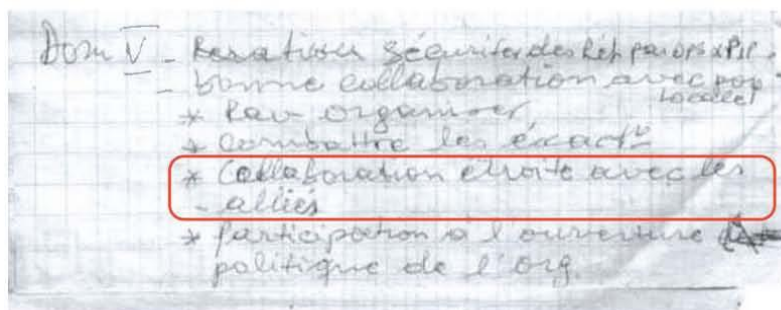 Dom V - sécuriser des Réf par ops
- bonne collaboration avec pop
locales
* organiser
* combattre les exact°
* Collaboration étroite avec les
- alliés
* participation à l'ouverture
politique de l'org.